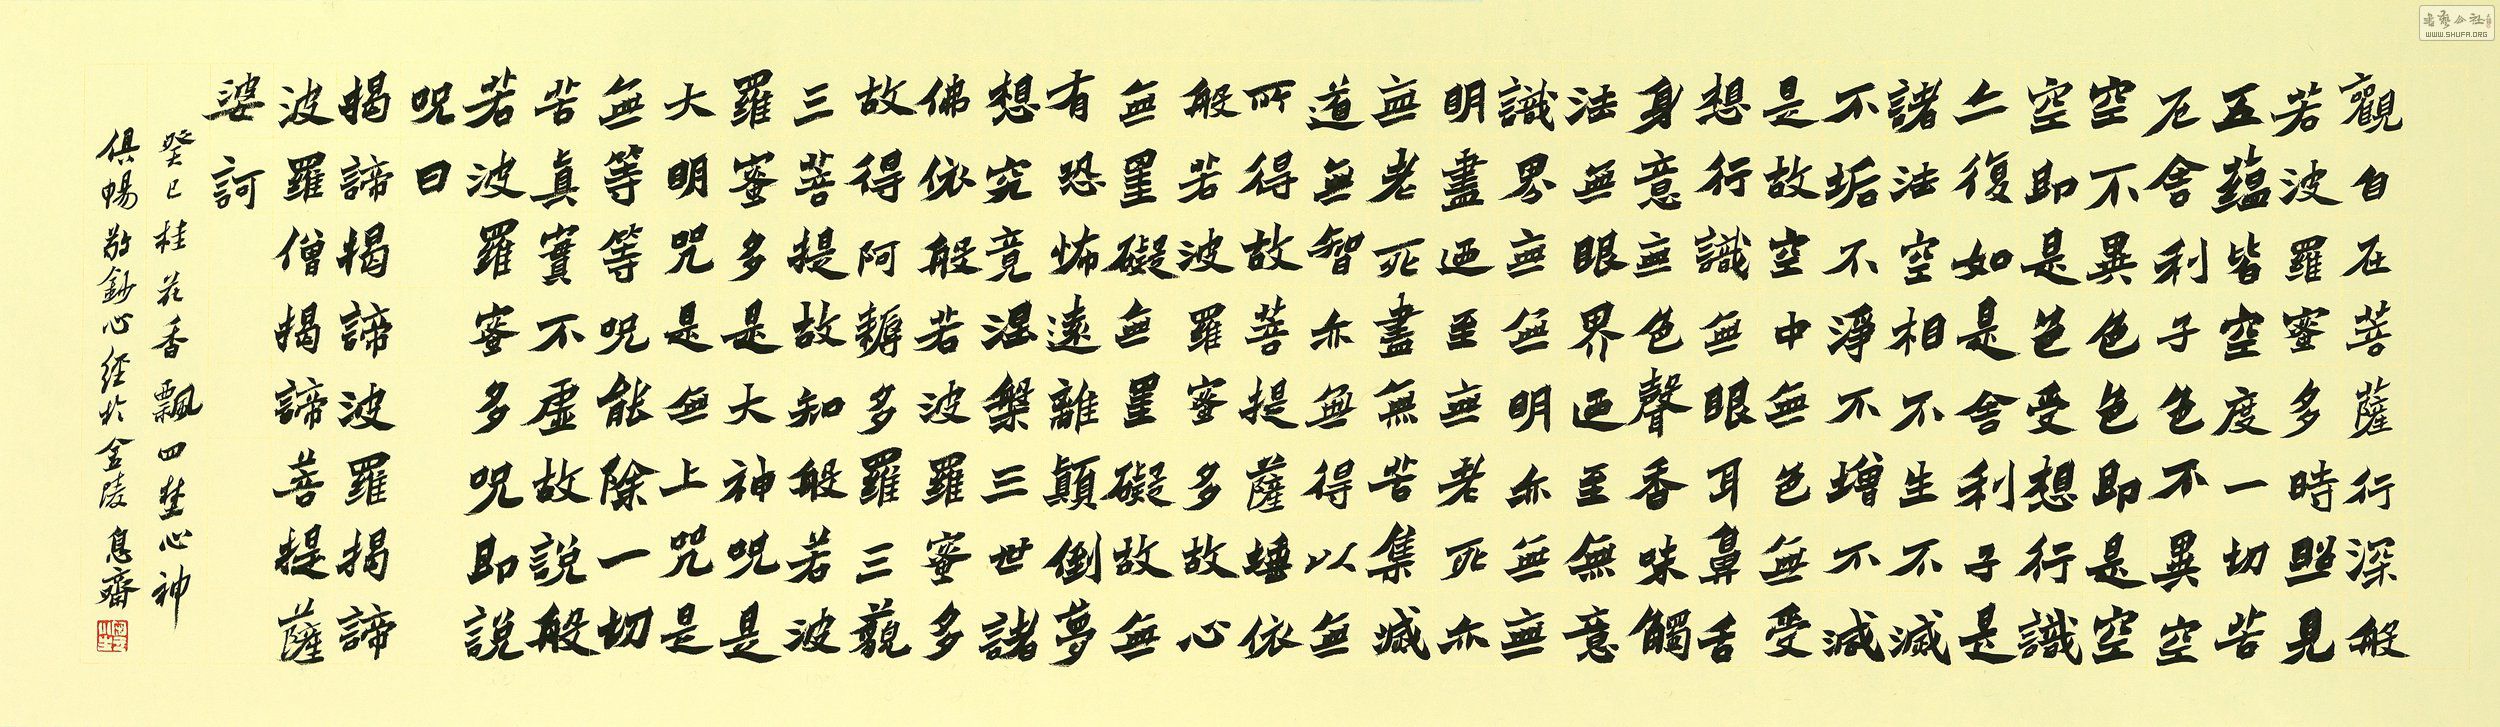 觀自在菩薩行深般
若波羅蜜多時照見
五蘊皆空度一切苦
厄舍利子色不異空
空不異色色即是空
空即是色受想行識
亦復如是舍利子是
諸法空相不生不滅
不垢不淨不增不減
是故空中無色無受
想行識無眼耳鼻舌
身意無色聲香味觸
法無眼界迺至無意
識界無無明亦無無
明盡迺至無老死亦
無老死盡無苦集滅
道無智亦無得以無
所得故菩提薩埵依
般若波羅蜜多故心
無罣礙無罣礙故無
有恐怖遠離顛倒夢
想究竟涅槃三世諸
佛依般若波羅蜜多
故得阿耨多羅三藐
三菩提故知般若波
羅蜜多是大神咒是
大明咒是無上咒是
無等等咒能除一切
苦真實不虛故說般
若波羅蜜多咒即說
咒曰
揭諦揭諦波羅揭諦
波羅僧揭諦菩提薩
婆訶
癸巳桂花香飄四埜心神
俱暢敬鈔心經於金陵息齋
書藝公社
WWW.SHUFA.ORG